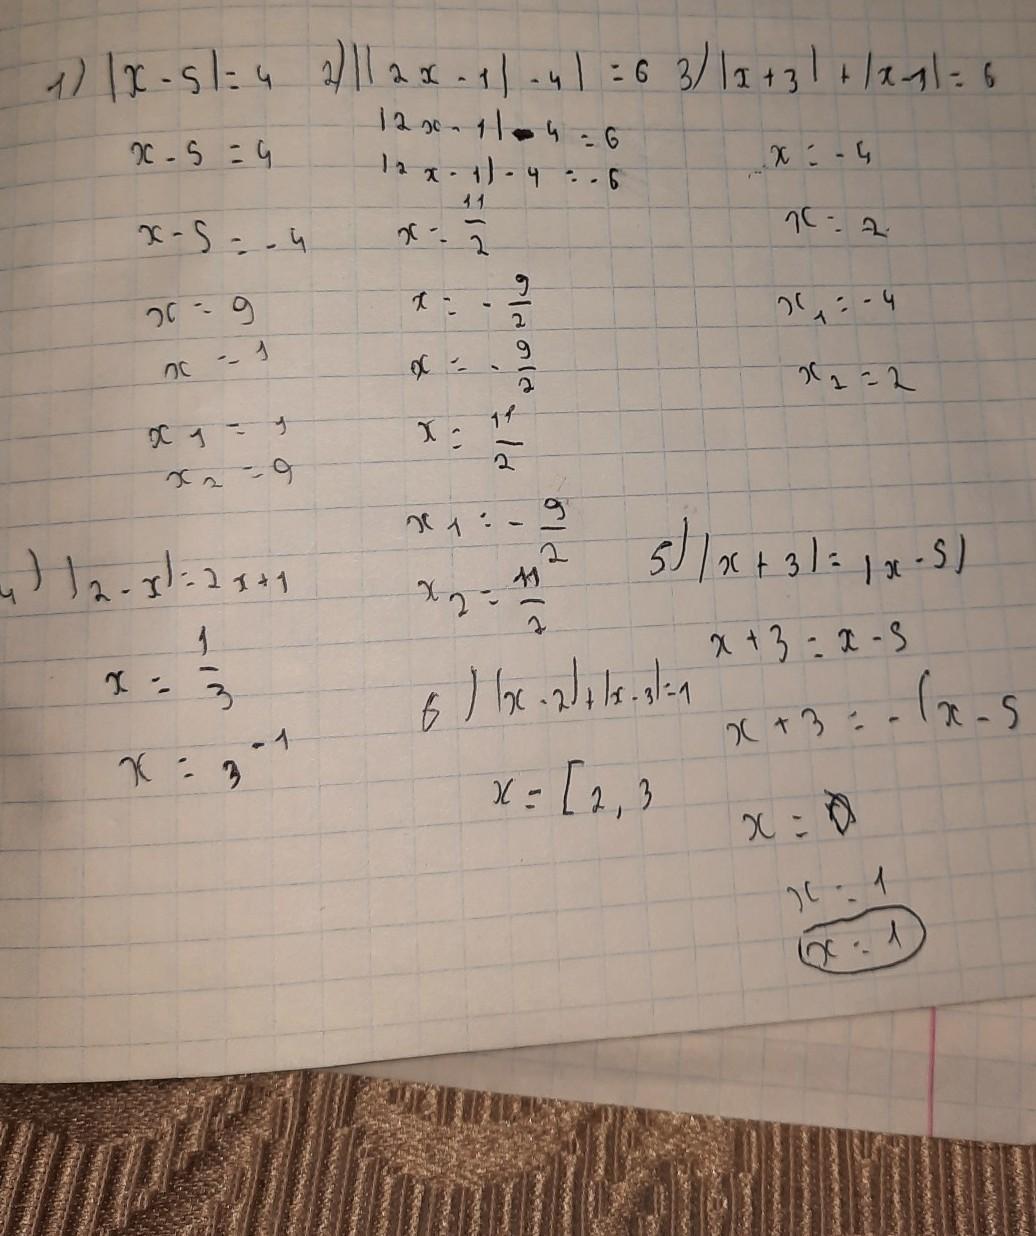 1) |x - 5| = 4
x - 5 = 4
x - 5 = - 4
x = 9
x = 1
x₁ = 1
x₂ = 9
2) ||2x - 1| - 4| = 6
|2x - 1| - 4 = 6
|2x - 1| - 4 = - 6
x = 11/2
x = - 9/2
x = - 9/2
x = 11/2
x₁ = - 9/2
x₂ = 11/2
3) |x + 3| + |x - 1| = 6
x = - 4
x = 2
x₁ = - 4
x₂ = 2
4) |2 - x| = 2x + 1
x = 1/3
x = 3⁻¹
5) |x + 3| = |x - 5|
x + 3 = x - 5
x + 3 = - (x - 5
x = Ø
x = 1
x = 1
6) |x - 2| + |x - 3| = 1
x = [2, 3